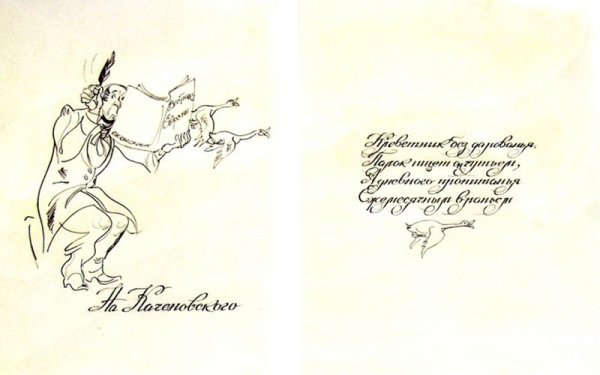 Вестник
Европы
На Каченовского
Клеветник без дарованья,
Палок ищет он чутьем,
А дневного пропитанья
Ежемесячным враньем